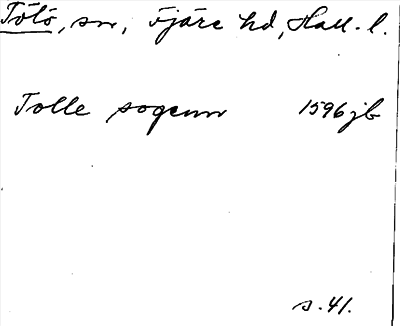 Tölö, sn, Fjäre hd, Hall. l.
Tolle sogenn 1596 jb
s. 41.